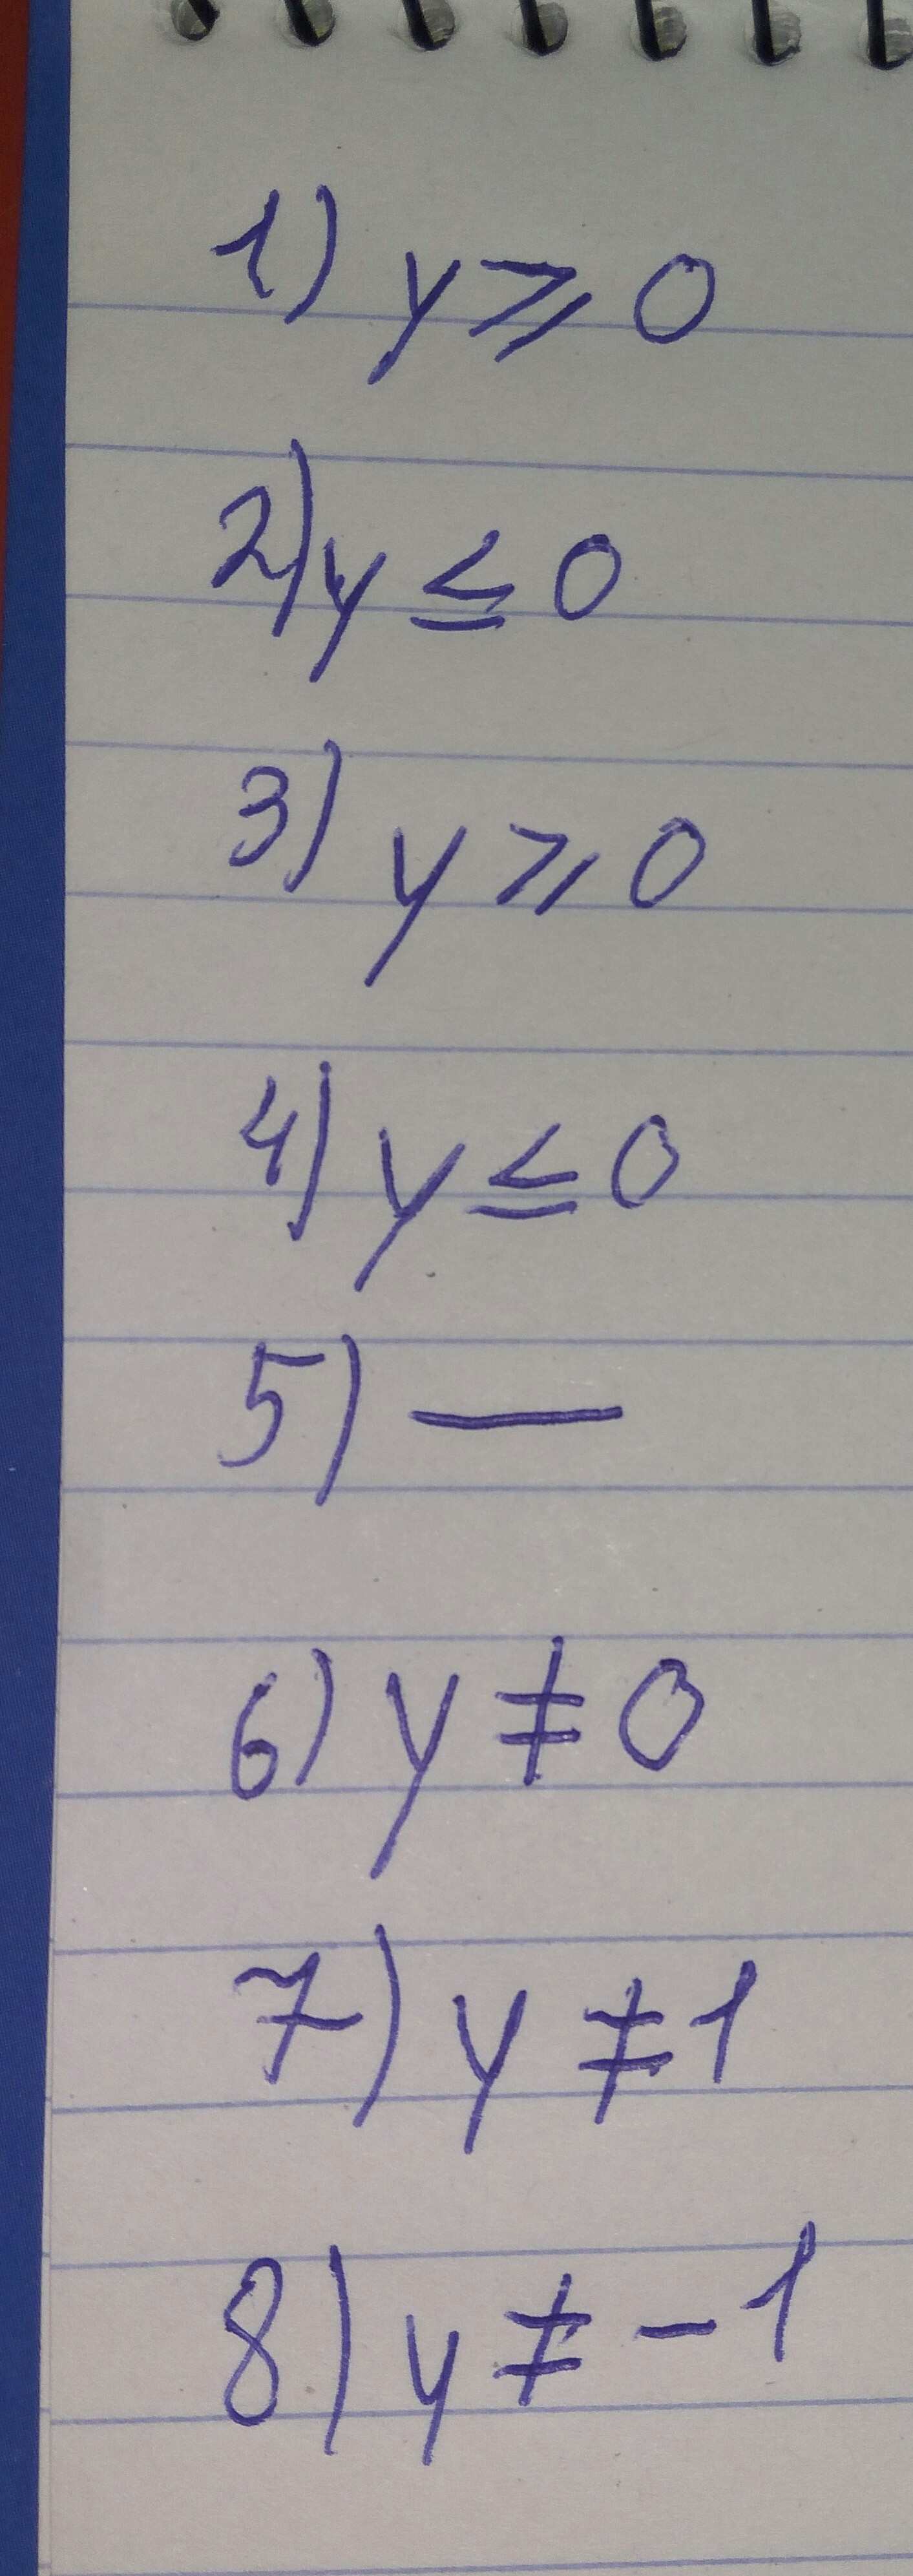 1) y ⩾ 0
2) y ≤ 0
3) y ⩾ 0
4) y ≤ 0
5) —
6) y ≠ 0
7) y ≠ 1
8) y ≠ -1